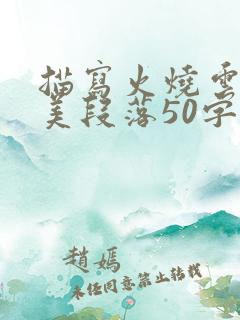 描寫火燒雲
美段落50字
趙媽
未任同意禁止轉載